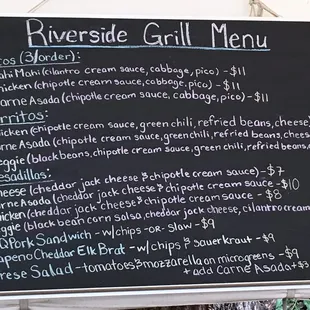 Riverside Grill Menu
cos (3/order):
ahi Mahi (cilantro cream sauce, cabbage, pico) - $11
hicken (chipotle cream sauce, cabbage, pico) - $11
arne Asada (chipotle cream sauce, cabbage, pico) - $11
rritos:
hicken (chipotle cream sauce, green chili, refried beans, cheese)
arne Asada (chipotle cream sauce, green chili, refried beans, chees
eggie (black beans, chipotle cream sauce, green chili, refried beans,
esadillas:
heese (cheddar jack cheese & chipotle cream sauce) - $7
arne Asada (cheddar jack cheese & chipotle cream sauce - $10
hicken (cheddar jack cheese & chipotle cream sauce - $8
eggie (black bean corn salsa, cheddar jack cheese, cilantro cream
Q Pork Sandwich - w/chips -or- slaw - $9
apeno Cheddar Elk Brat - w/chips & sauerkraut - $9
rese Salad - tomatoes & mozzarella on microgreens - $9
+ add Carne Asada + $3